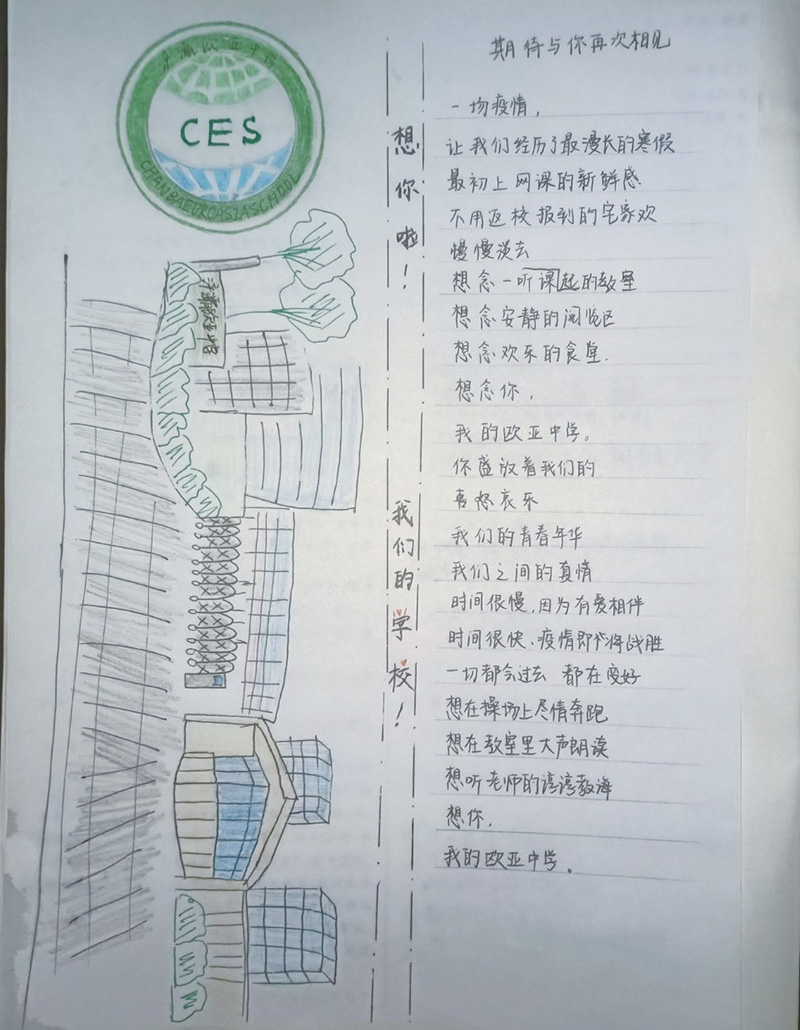 浐灞欧亚中学
CES
CHANBAEUROASIASCHOOL
浐灞欧亚中学
想你啦！
我们的学校！
期待与你再次相见
一场疫情，
让我们经历了最漫长的寒假
最初上网课的新鲜感
不用返校报到的宅家欢
慢慢淡去
想念一听课起的教室
想念安静的阅览区
想念欢乐的食堂.
想念你，
我的欧亚中学。
你盛放着我们的
喜怒哀乐
我们的青春年华
我们之间的真情
时间很慢，因为有爱相伴
时间很快、疫情即将战胜
一切都会过去 都在变好
想在操场上尽情奔跑
想在教室里大声朗读
想听老师的谆谆教诲
想你.
我的欧亚中学.